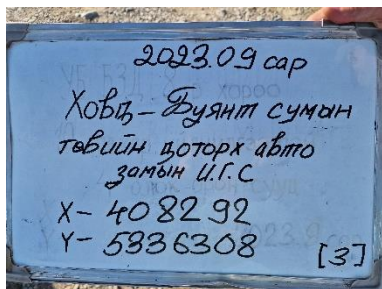 2023.09 сар
Ховд-Буянт сумын
төвийн доторх авто
замын И.Г.С
X- 408292
Y- 5336308
[3]